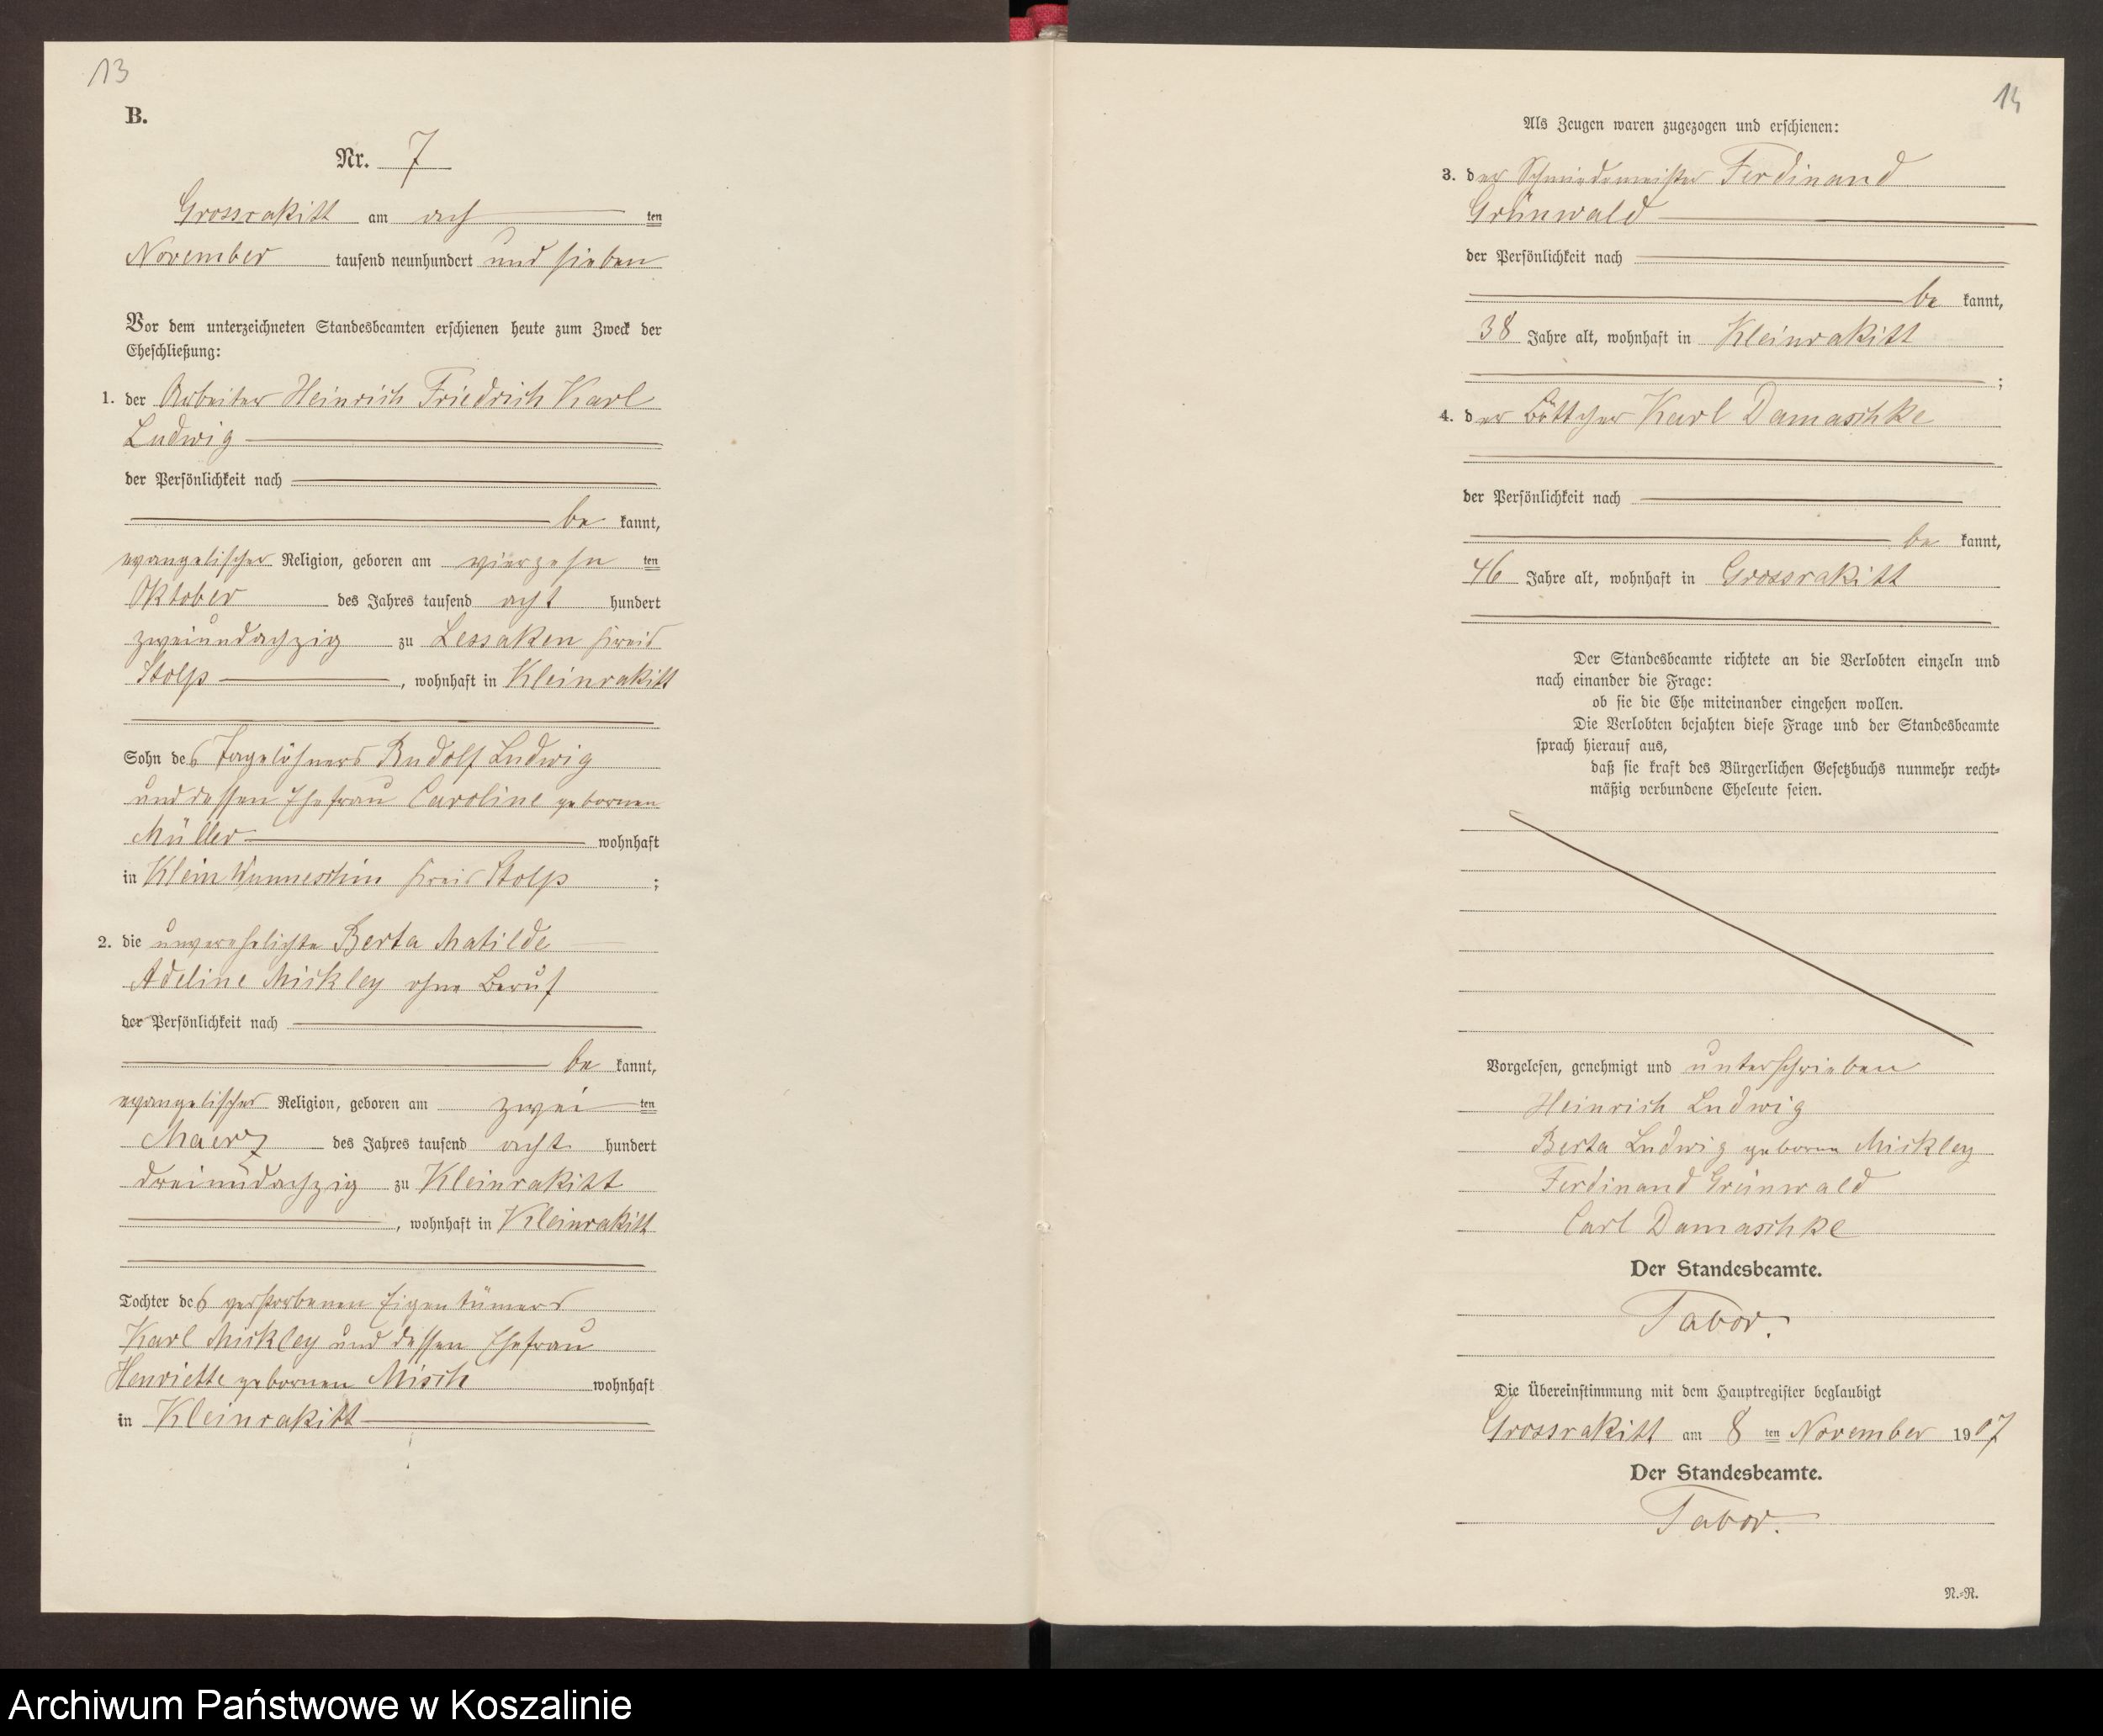 13
B.
Nr. 7
Grossrakitt am ach ten
November tausend neunhundert und sieben
Vor dem unterzeichneten Standesbeamten erschienen heute zum Zweck der
Eheschließung:
1. der Arbeiter Heinrich Friedrich Karl
Ludwig
der Persönlichkeit nach
be kannt,
evangelischer Religion, geboren am vierzehn ten
Oktober des Jahres tausend acht hundert
zweiundachzig zu Lessaken Kreis
Stolp , wohnhaft in Kleinrakitt
Sohn des Tagelöhners Rudolf Ludwig
und dessen Ehefrau Caroline gebornen
Müller wohnhaft
in Klein Wunneschin Kreis Stolp ;
2. die unverehelichte Berta Matilde
Adeline Mickley ohne Beruf
der Persönlichkeit nach
be kannt,
evangelischer Religion, geboren am zwei ten
Maerz des Jahres tausend acht hundert
dreiundachzig zu Kleinrakitt
, wohnhaft in Kleinrakitt
Tochter des verstorbenen Eigentümers
Karl Mickley und dessen Ehefrau
Henriette gebornen Misch wohnhaft
in Kleinrakitt
14
Als Zeugen waren zugezogen und erschienen:
3. der Schmiedemeister Ferdinand
Grünwald
der Persönlichkeit nach
be kannt,
38 Jahre alt, wohnhaft in Kleinrakitt
;
4. der Böttcher Karl Damaschke
der Persönlichkeit nach
be kannt,
46 Jahre alt, wohnhaft in Grossrakitt
Der Standesbeamte richtete an die Verlobten einzeln und
nach einander die Frage:
ob sie die Ehe miteinander eingehen wollen.
Die Verlobten bejahten diese Frage und der Standesbeamte
sprach hierauf aus,
daß sie kraft des Bürgerlichen Gesetzbuchs nunmehr recht-
mäßig verbundene Eheleute seien.
Vorgelesen, genehmigt und unterschrieben
Heinrich Ludwig
Berta Ludwig geborne Mickley
Ferdinand Grünwald
Carl Damaschke
Der Standesbeamte.
Tabor.
Die Übereinstimmung mit dem Hauptregister beglaubigt
Grossrakitt am 8 ten November 1907
Der Standesbeamte.
Tabor.
N.-R.
Archiwum Państwowe w Koszalinie